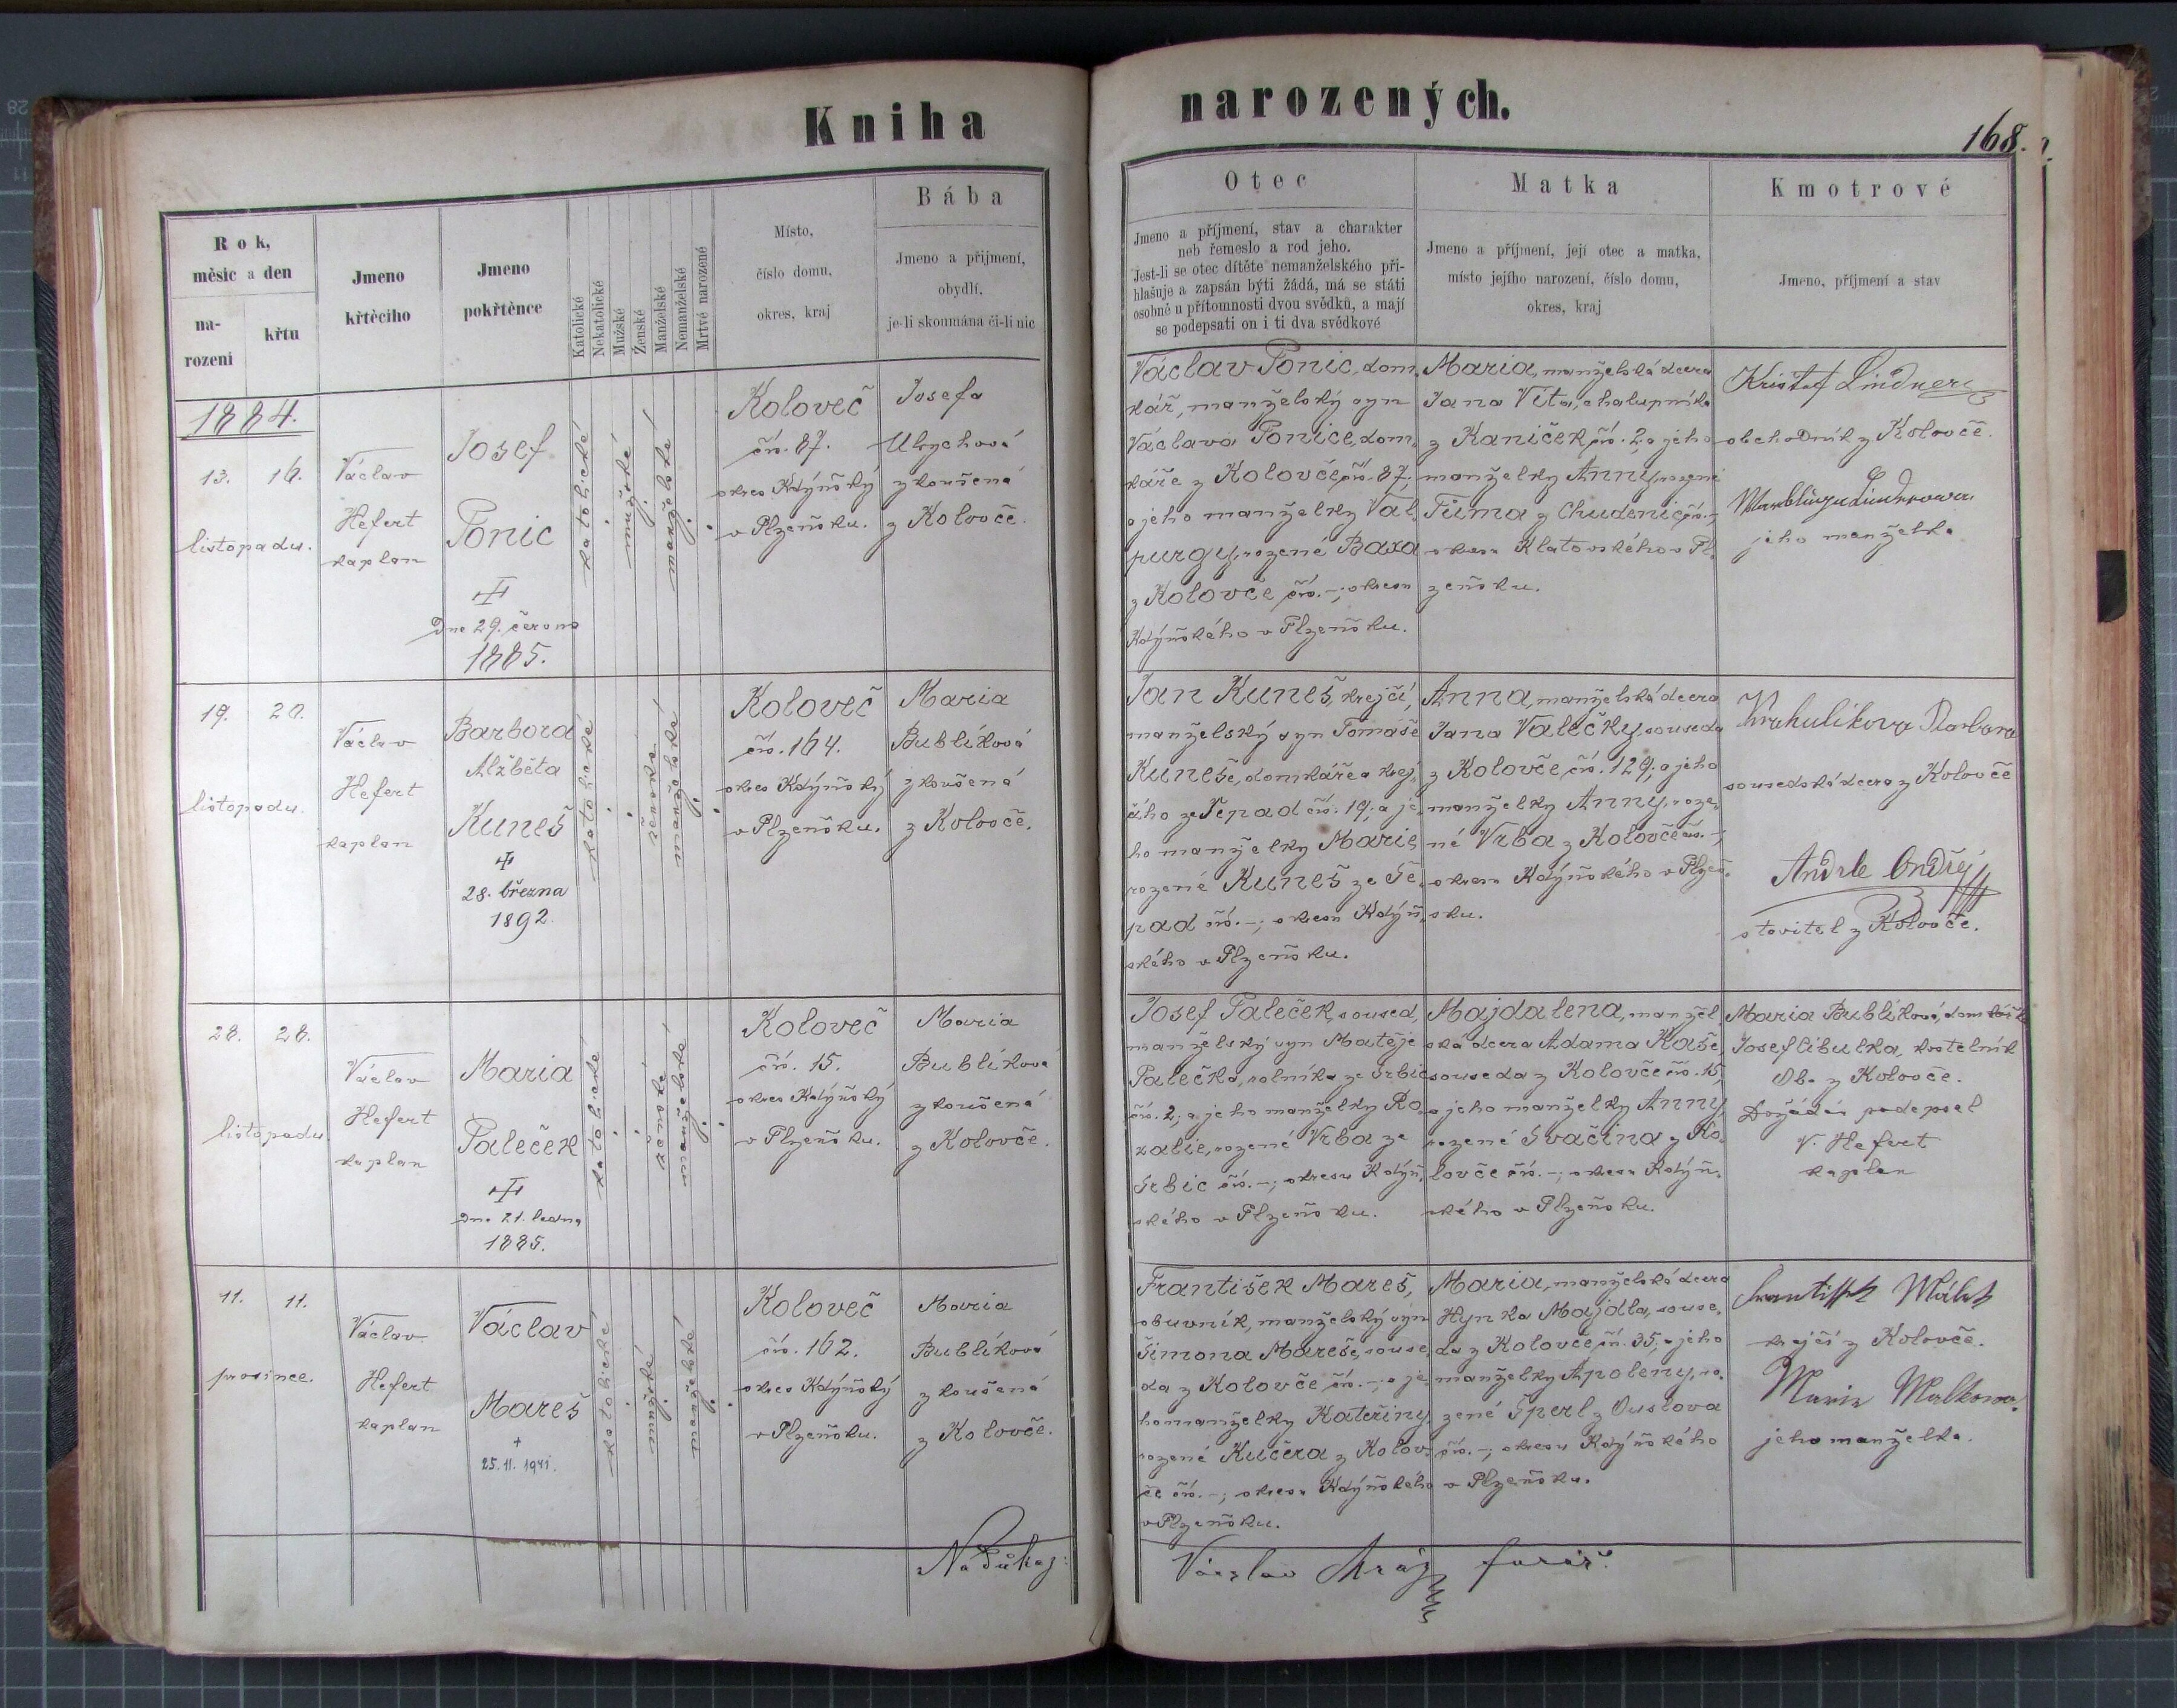 Kniha
narozených.
168.
Rok,
měsíc a den
na-
rození
křtu
Jmeno
křtěcího
Jmeno
pokřtěnce
Katolické
Nekatolické
Mužské
Ženské
Manželské
Nemanželské
Mrtvé narozené
Místo,
číslo domu,
okres, kraj
Bába
Jmeno a přijmení,
obydlí,
je-li skoumána či-li nic
Otec
Jmeno a příjmení, stav a charakter
neb řemeslo a rod jeho.
Jest-li se otec dítěte nemanželského při-
hlašuje a zapsán býti žádá, má se státi
osobně u přítomnosti dvou svědků, a mají
se podepsati on i ti dva svědkové
Matka
Jmeno a příjmení, její otec a matka,
místo jejího narození, číslo domu,
okres, kraj
Kmotrové
Jmeno, příjmení a stav
1884.
13. 16.
listopadu.
Václav
Hefert
kaplan
Josef
Tonic
Dne 29. června
1885.
katolické
mužské
manželské
Koloveč
čís. 87.
okres Kdýňský
v Plzeňsku.
Josefa
Ulrychová
zkoušená
z Kolovče.
Václav Tonic, dom,
kář, manželský syn
Václava Tonice, dom,
káře z Kolovče čís. 87;
a jeho manželky Val,
purgy, rozené Baxa
z Kolovče čís. -; okresu
Kdýňského v Plzeňsku.
Maria, manželská dcera
Jana Víta, chalupníka
z Kaniček čís. 2, a jeho
manželky Anny, rozené
Tůma z Chudenic čís. -,
okresu Klatovského v Pl,
zeňsku.
Krištof Lindner
obchodník z Kolovče.
Lindnerowa
jeho manželka
19. 20.
listopadu.
Václav
Hefert
kaplan
Barbora
Alžběta
Kuneš
28. března
1892.
katolické
ženské
manželské
Koloveč
čís. 164.
okres Kdýňský
v Plzeňsku.
Maria
Bublíková
zkoušená
z Kolovče.
Jan Kuneš, krejčí,
manželský syn Tomáše
Kuneše, domkáře a krej,
čího ze Šepad čís. 19; a je,
ho manželky Marie,
rozené Kuneš ze Še,
pad čís. -; okresu Kdýň,
ského v Plzeňsku.
Anna, manželská dcera
Jana Valečky, souseda
z Kolovče čís. 129; a jeho
manželky Anny, roze,
né Vrba z Kolovče čís. -;
okresu Kdýňského v Plzeň,
sku.
Krahulíkova Barbora
sousedská dcera z Kolovče
Andrle Ondřej
stavitel z Kolovče.
28. 28.
listopadu
Václav
Hefert
kaplan
Maria
Paleček
Dne 21. ledna
1885.
katolické
ženské
manželské
Koloveč
čís. 15.
okres Kdýňský
v Plzeňsku.
Maria
Bublíková
zkoušená
z Kolovče.
Josef Paleček, soused,
manželský syn Matěje
Palečka, rolníka ze Srbic
čís. 2; a jeho manželky Ro,
zalie, rozené Vrba ze
Srbic čís. -; okresu Kdýň,
ského v Plzeňsku.
Majdalena, manžel,
ská dcera Adama Kaše,
souseda z Kolovče čís. 15,
a jeho manželky Anny,
rozené Svačina z Ko,
lovče čís. -; okresu Kdýň,
ského v Plzeňsku.
Maria Bublíková, domkářka
Josef Cibulka, kostelník
Ob. z Kolovče.
Dožádán podepsal
V. Hefert
kaplan
11. 11.
prosince.
Václav
Hefert
kaplan
Václav
Mareš
+
25. 11. 1941.
katolické
mužské
manželské
Koloveč
čís. 162.
okres Kdýňský
v Plzeňsku.
Maria
Bublíková
zkoušená
z Kolovče.
František Mareš,
obuvník, manželský syn
Šimona Mareše, souse,
da z Kolovče čís. -; a je,
ho manželky Kateřiny,
rozené Kučera z Kolov,
če čís. -; okresu Kdýňského
v Plzeňsku.
Maria, manželská dcera
Hynka Majdla, souse,
da z Kolovče čís. 35; a jeho
manželky Apoleny, ro,
zené Šperl z Ouslova
čís. -; okresu Kdýňského
v Plzeňsku.
Málek
krejčí z Kolovče.
Marie Malkowa.
jeho manželka.
Na důkaz:
Václav Mráz farář.